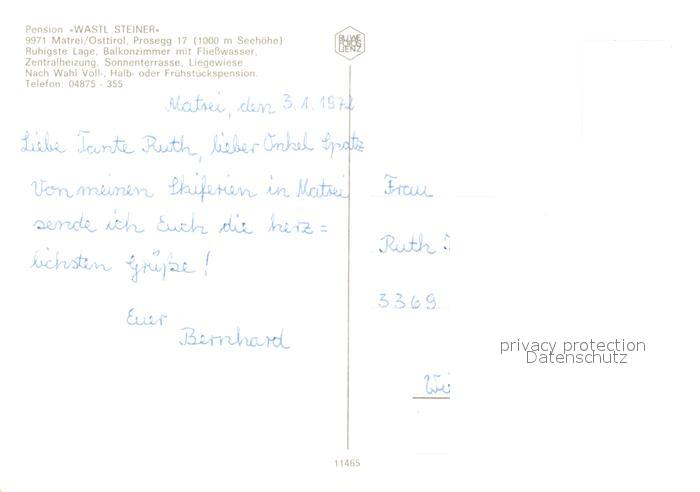 Pension «WASTL STEINER»
9971 Matrei/Osttirol, Prosegg 17 (1000 m Seehöhe)
Ruhigste Lage, Balkonzimmer mit Fließwasser,
Zentralheizung, Sonnenterrasse, Liegewiese.
Nach Wahl Voll-, Halb- oder Frühstückspension.
Telefon: 04875 - 355
Matrei, den 3.1.1972
Liebe Tante Ruth, lieber Onkel Spatz
Von meinen Skiferien in Matrei
sende ich Euch die herz=
lichsten Grüße!
Euer
Bernhard
Frau
Ruth
3369
privacy protection
Datenschutz
11465